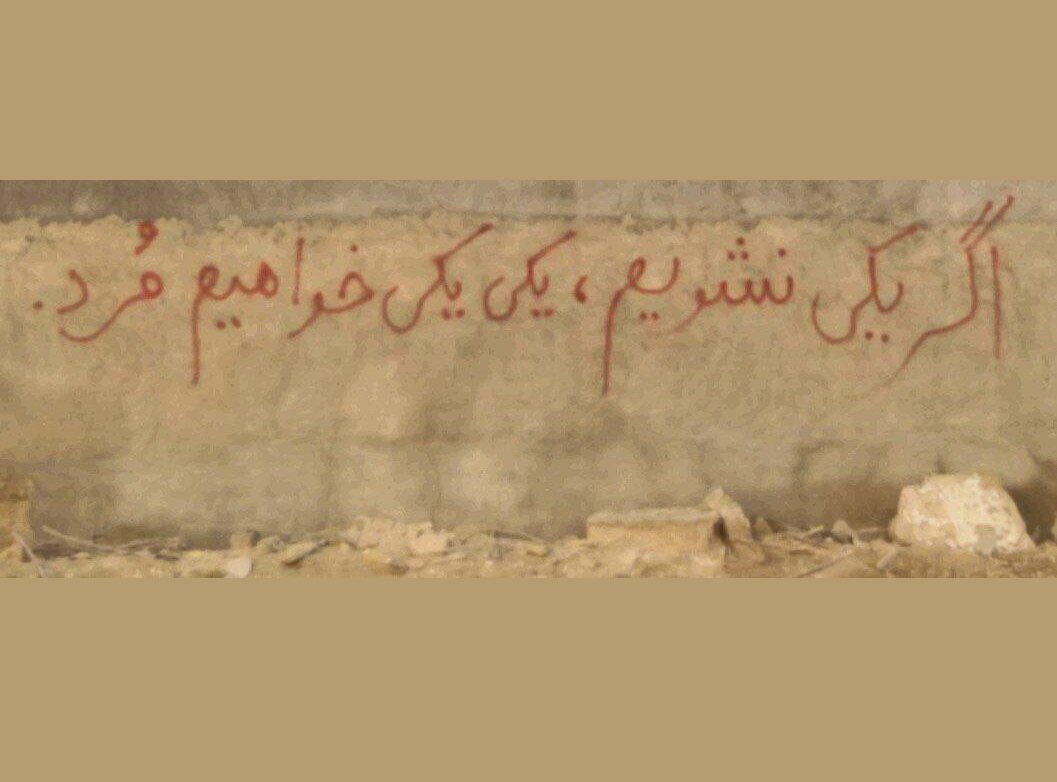 اگر یکی نشویم، یکی یکی خواهیم مُرد.